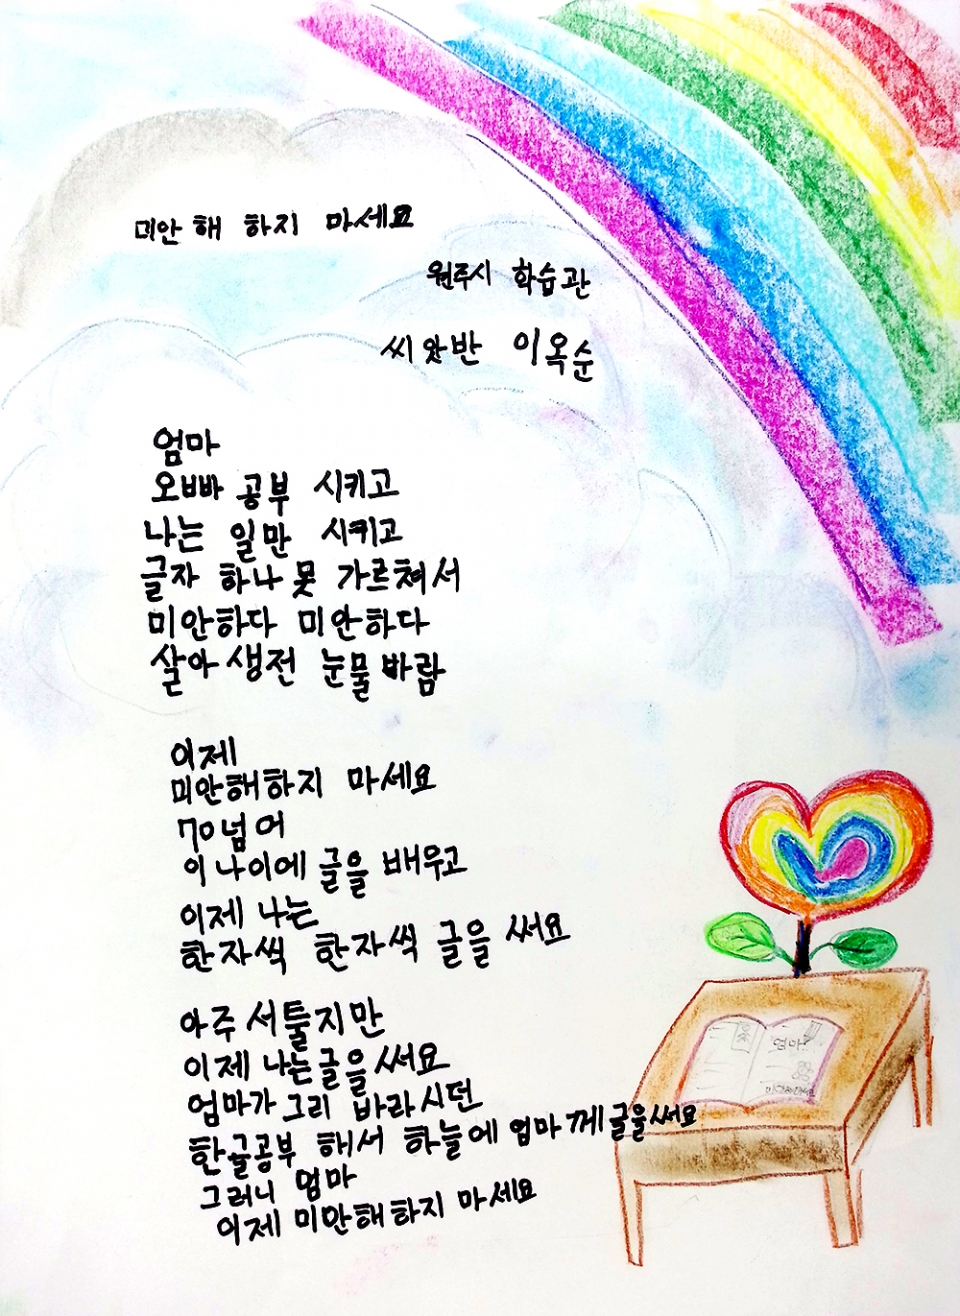 미안해 하지 마세요
원주시 학습관
씨앗반 이옥순
엄마
오빠 공부 시키고
나는 일만 시키고
글자 하나 못 가르쳐서
미안하다 미안하다
살아 생전 눈물 바람
이제
미안해하지 마세요
70넘어
이 나이에 글을 배우고
이제 나는
한자씩 한자씩 글을 써요
아주 서툴지만
이제 나는글을 써요
엄마가 그리 바라시던
한글공부 해서 하늘에 엄마께 글을써요
그러니 엄마
이제 미안해하지 마세요
엄마